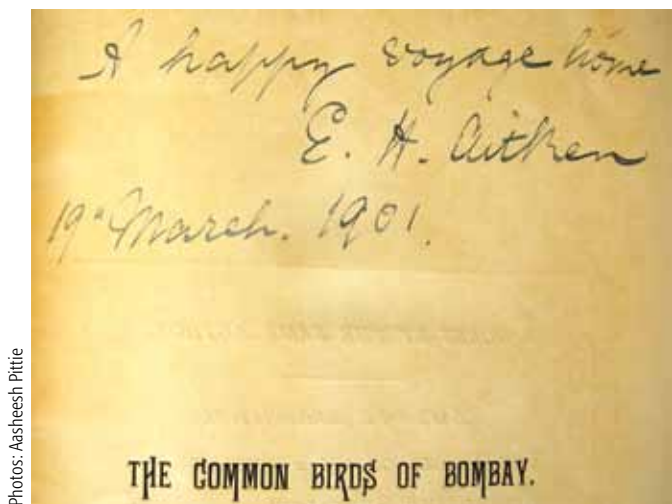 A happy voyage home
E. H. Aitken
19" March. 1901.
THE COMMON BIRDS OF BOMBAY.
Photos: Aasheesh Pittie